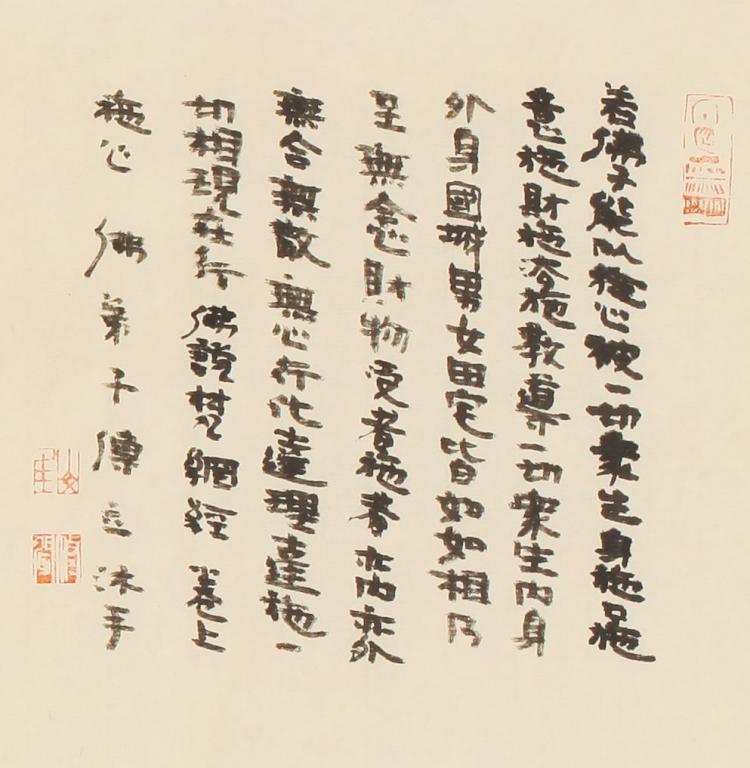 若佛子能以施心被一切眾生身施口施
意施財施法施教導一切眾生內身
外身國城男女田宅皆如如相乃
至無念財物受者施者亦內亦外
無合無散無心行化達理達施一
切相現在行 佛說梵網經 卷上
施心 佛弟子傅 沐手